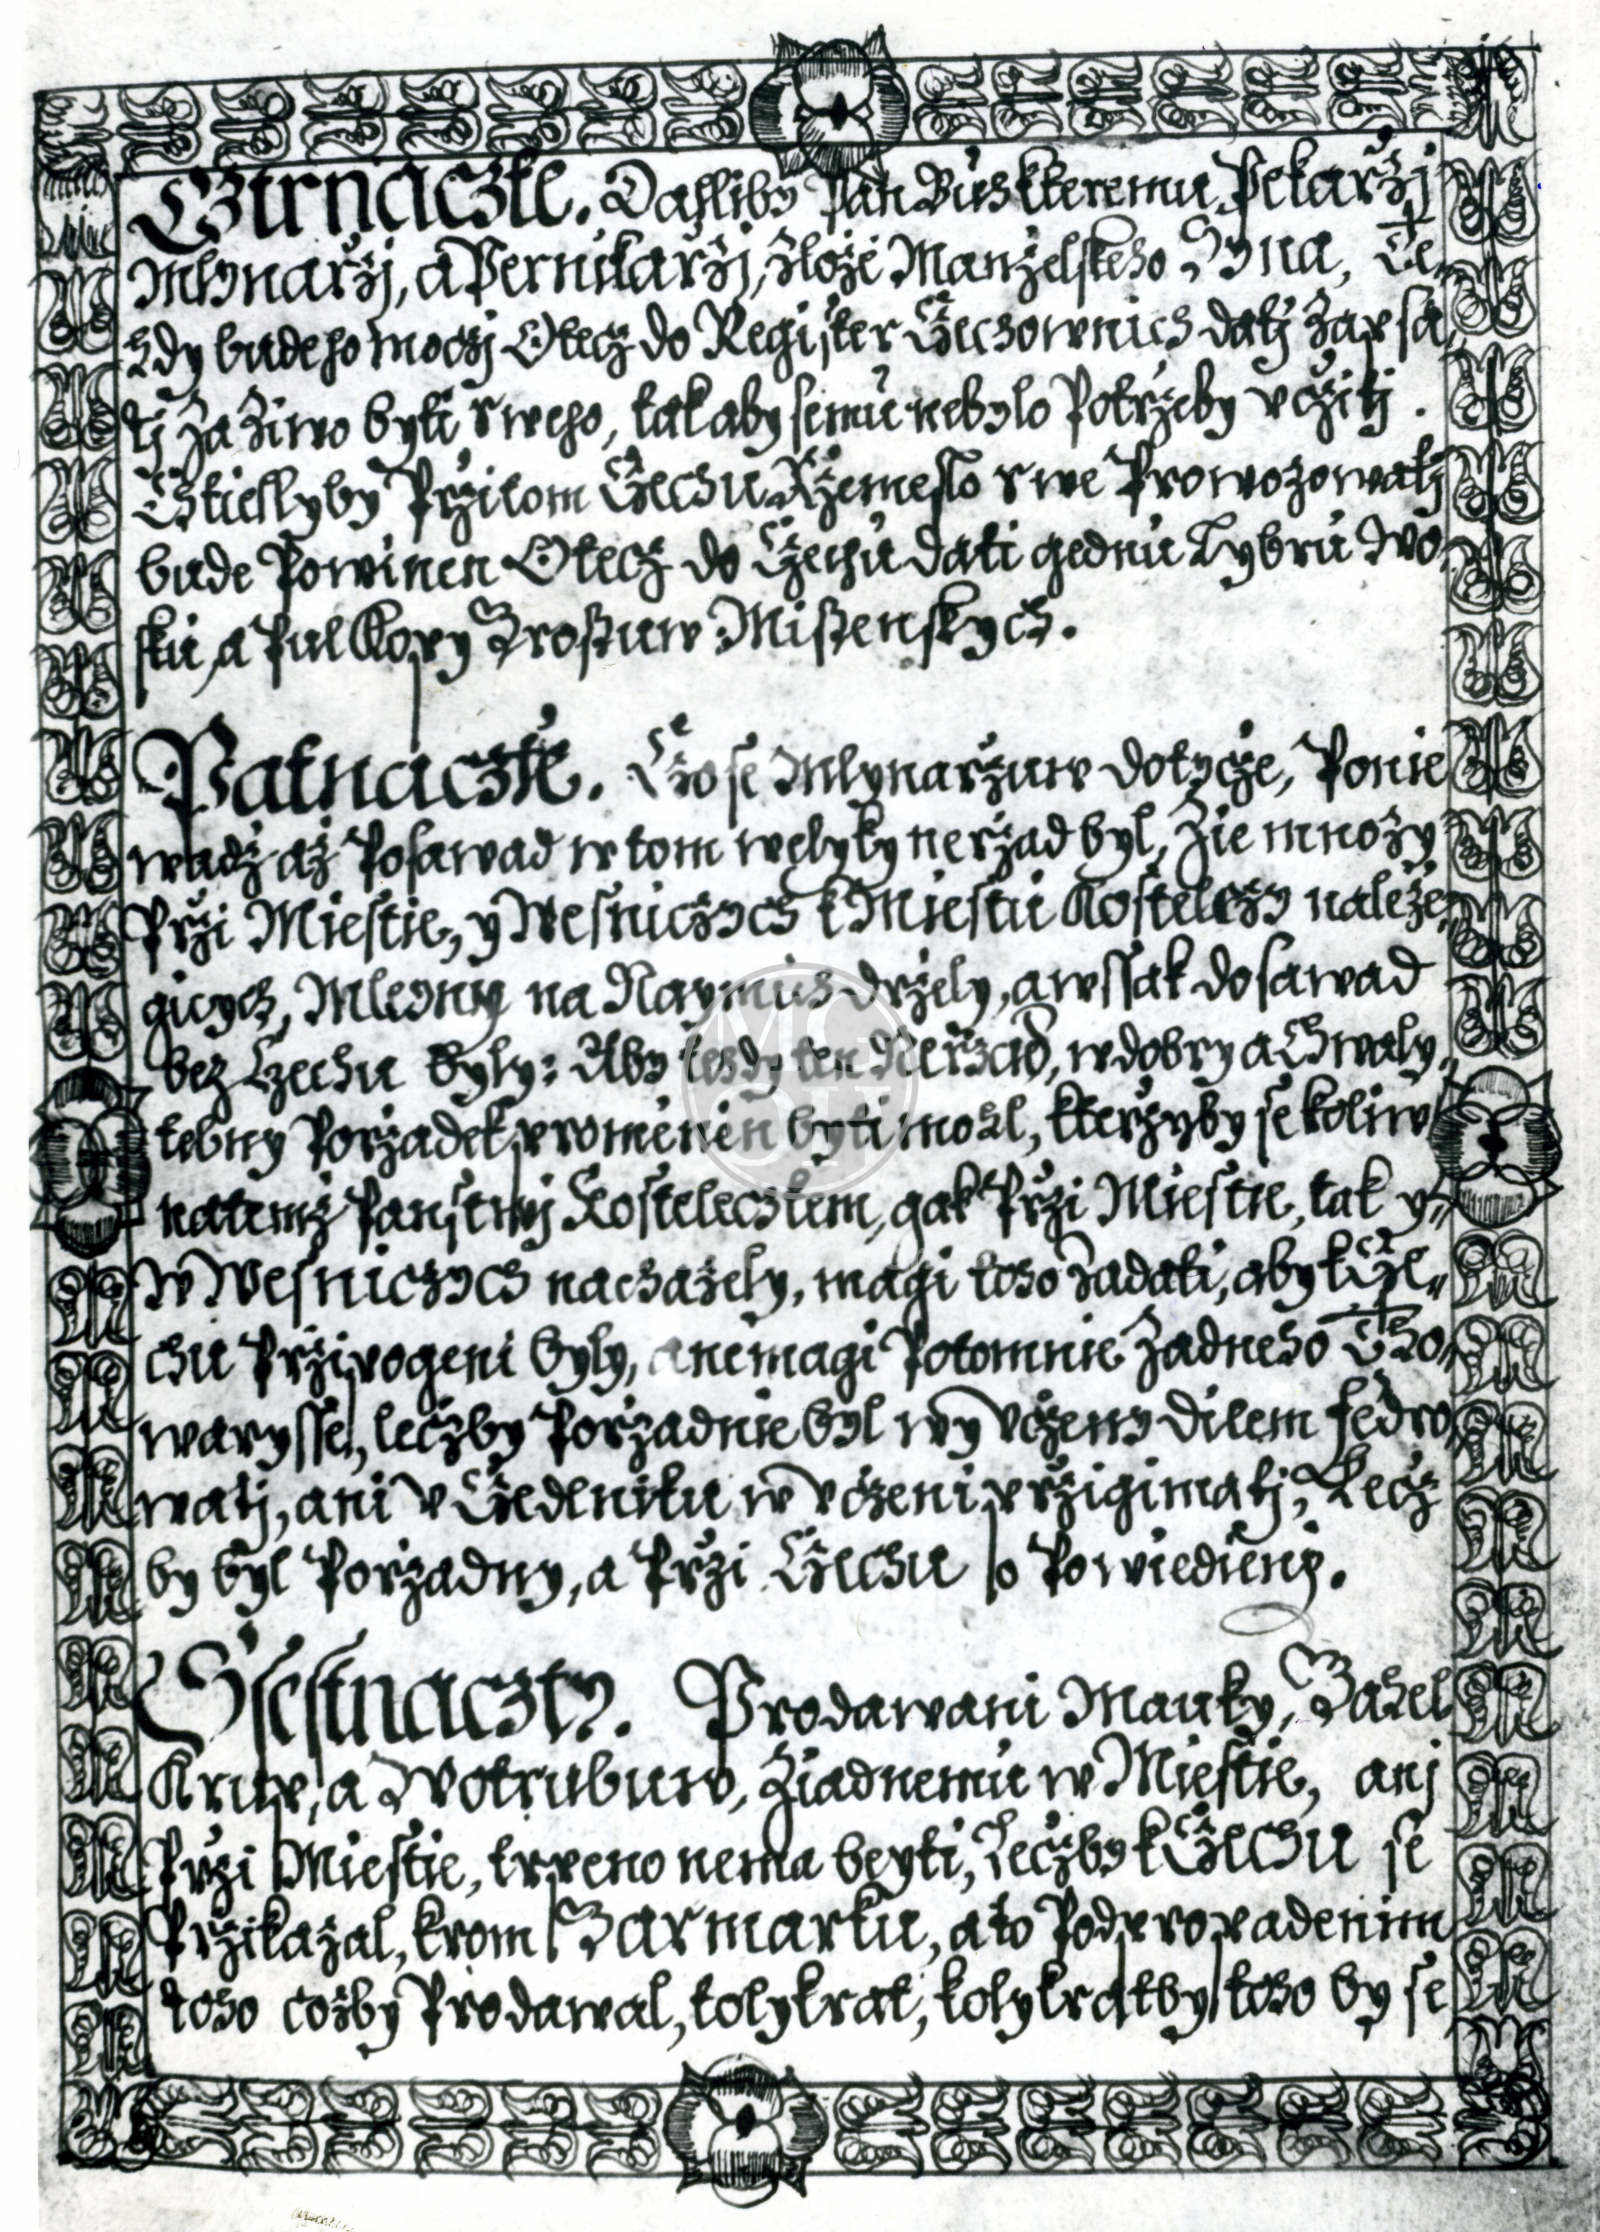 Cztrnaczte. Dalliby Pan Buh kteremu Pekarzi
Mlynarzj, a Pernikarzj, z loze Manzelskeho Syna, Te„
hdy bude ho moczj Otecz do Register Czechownich datj Zapsa„
tj Za Ziwo byti sweho, tak aby se mu nebylo Potrzeby vczitj.
Chtiellyby Przi tom Czechu Rzemeslo swe Prowozowatj
bude Powinen Otecz do Czechu dati gednu Lybru Wo„
sku, a Pul Kopy Grossuw Missenskych.
Patnaczte. Czo se Mlynarzuw dotycze, Ponie
wadz az Posawad w tom welyky nerzad byl, Zie mnozy
Przi Miestie, y Wesniczych k Miestu Kosteleczy naleze„
gicych, Mleyny na Naymuh drzely, a wssak dosawad
bez Czechu byly: Aby tehdy ten Nerzad, w dobry a Chwaly„
tebny Porzadek promenen byti mohl, kterzyby se koliw
na temz Panstwj Kosteleczkem, gak Przi Miestie, tak y„
w Wesniczych nachazely, magi toho Zadati, aby k Cze„
chu Przipogeni byly, a nemagi Potomnie Zadneho Tho„
warysse, leczby Porzadnie byl wy vczeny dilem fedro„
watj, ani v Czedlniku w vczeni przigimatj, Lecz
by byl Porzadny, a Przi Czechu
Ssestnaczty. Prodawani Mauky, Jahel
Krup, a Wotrubuw, Ziadnemu w Miestie, anj
Przi Miestie, trpeno nema beyti, Leczby k Czechu se
Przikazal, krom Jarmarku, a to Pod propadenim
toho cozby Prodawal, tolykrat, kolykratby toho by se